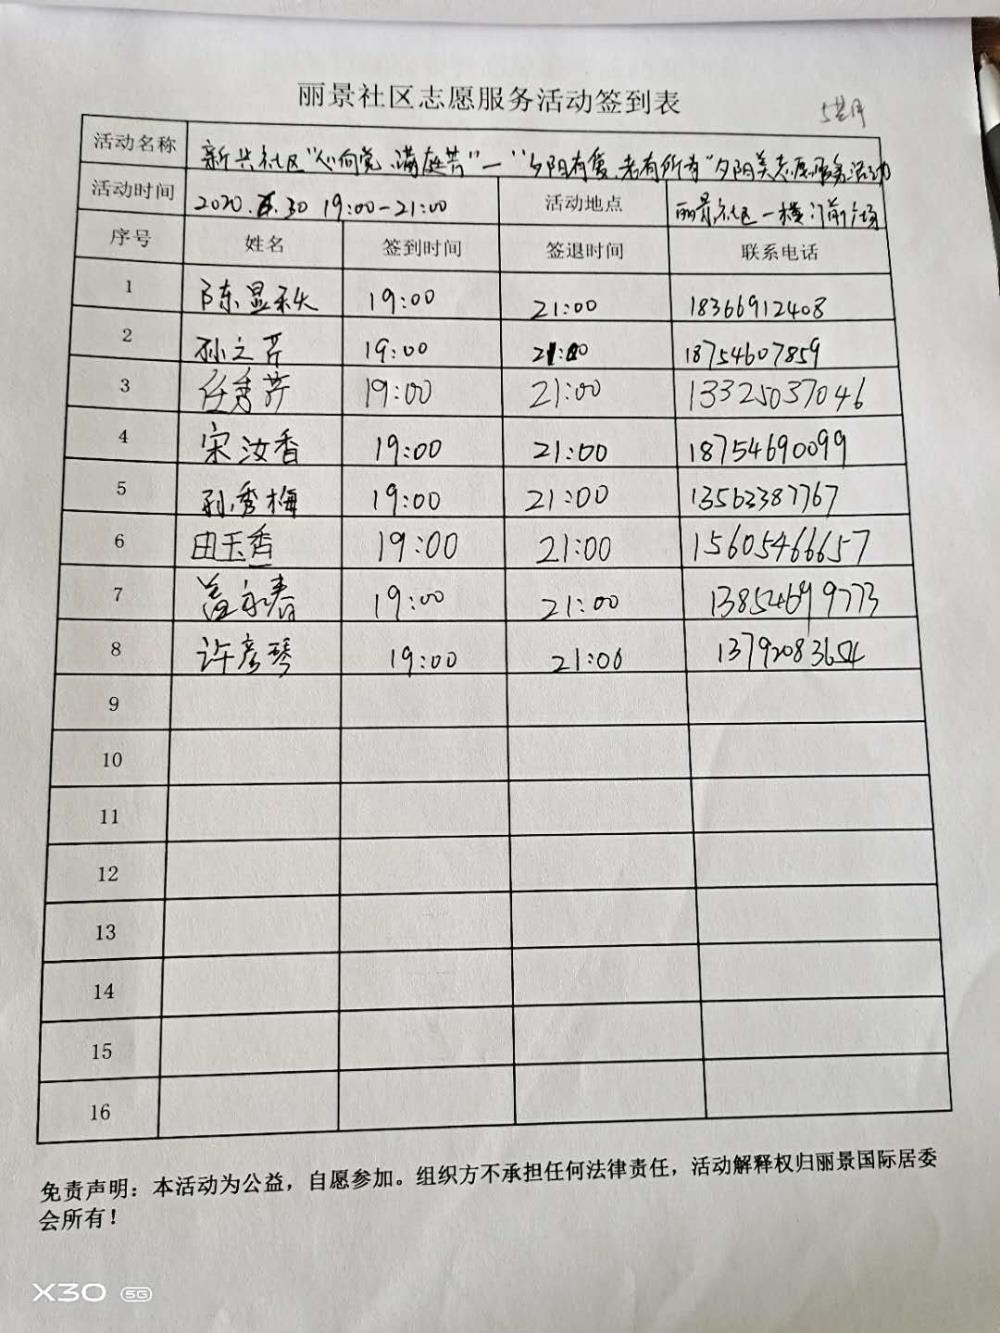 丽景社区志愿服务活动签到表
活动名称 新兴社区"心向党 满庭芳"一"夕阳有爱 老有所有"夕阳美志愿服务活动
活动时间 2020. .30 19:00-21:00 活动地点 丽景社区一楼门前广场
序号 姓名 签到时间 签退时间 联系电话
1 陈显秋 19:00 21:00 18366912408
2 孙立芹 19:00 21:00 18754607859
3 任秀芹 19:00 21:00 13325037046
4 宋汝香 19:00 21:00 18754690099
5 孙秀梅 19:00 21:00 13562387767
6 田玉香 19:00 21:00 15605466657
7 盖永春 19:00 21:00 13854699773
8 许彦琴 19:00 21:00 13792083654
9
10
11
12
13
14
15
16
免责声明：本活动为公益，自愿参加。组织方不承担任何法律责任，活动解释权归丽景国际居委
会所有！
X30 5G